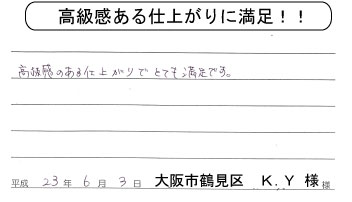 高級感ある仕上がりに満足！！
高級感のある仕上がりでとても満足です。
平成 23年 6月 3日 大阪市鶴見区 K.Y 様 様